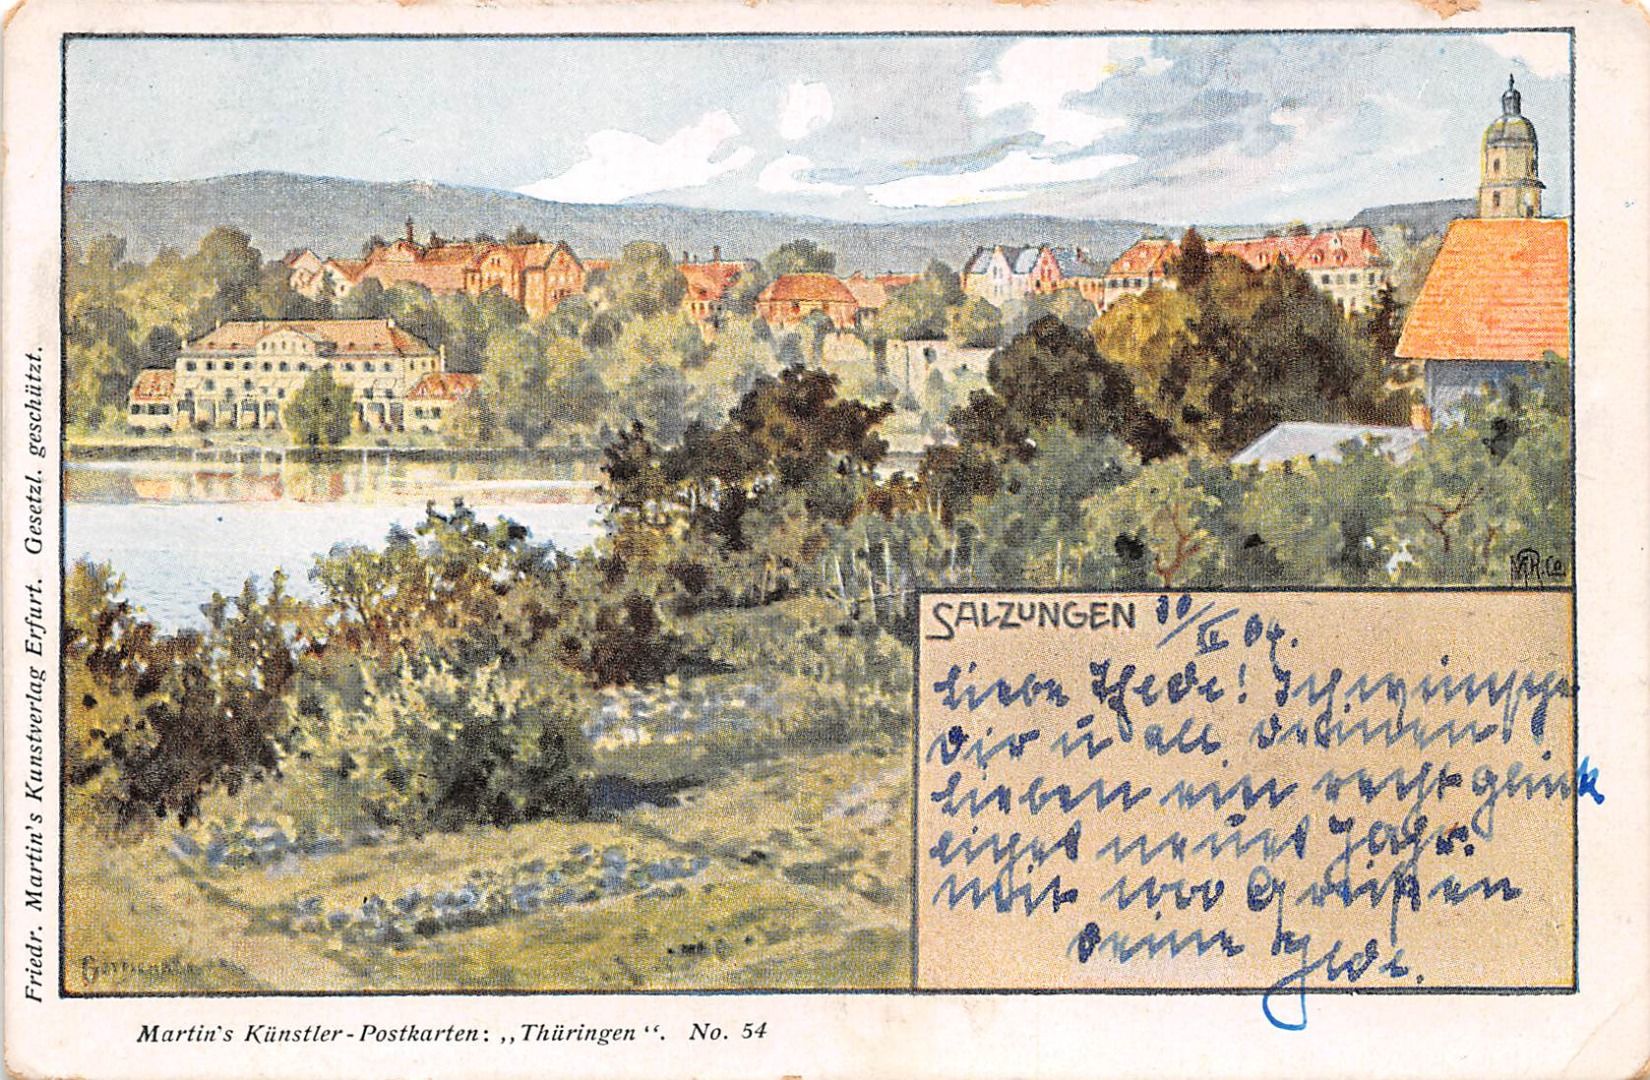 Friedr. Martin's Kunstverlag Erfurt. Gesetzl. geschützt.
MR.Co
SALZUNGEN 30/ 04.
Liebe Hede! Ich wünsche
Dir u all deinen
Lieben ein recht glück
liches neues Jahr.
Mit Grüßen
Deine Hede.
Martin's Künstler-Postkarten: „Thüringen“. No. 54